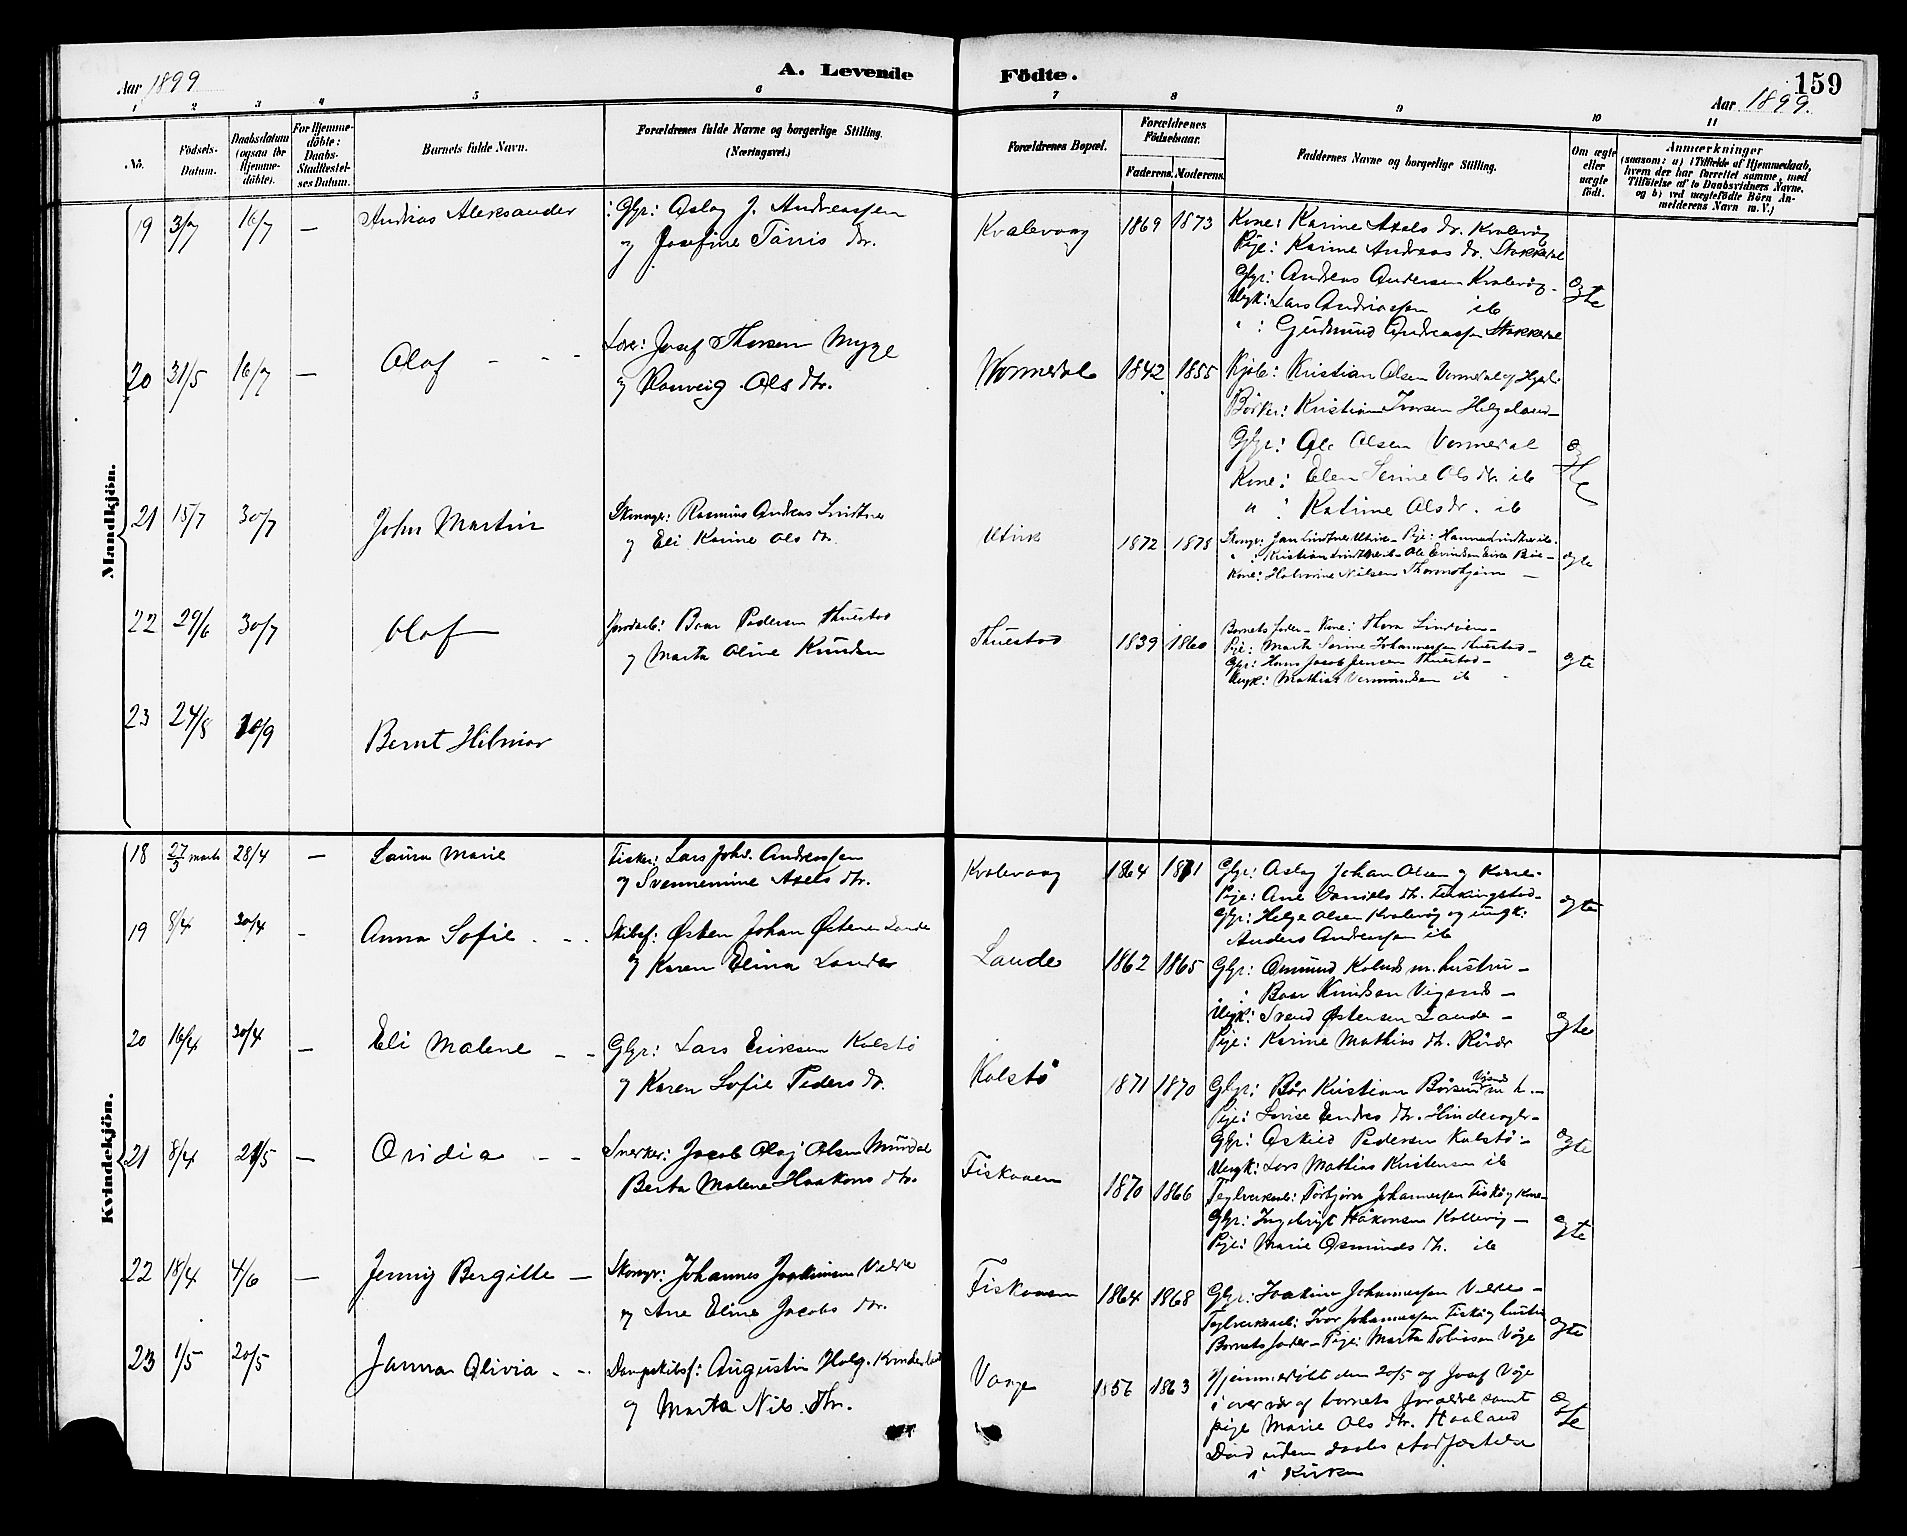 Aar 1899
A. Levende Födte.
159
Aar 1899.
1 2 3 4 5 6 7 8 9 10 11
No.
Födsels-Datum.
Daabsdatum (ogsaa for Hjemme-döbte).
For Hjemme-döbte: Daabs-Stadfæstel-ses Datum.
Barnets fulde Navn.
Forældrenes fulde Navne og borgerlige Stilling. (Næringsvei.)
Forældrenes Bopæl.
Forældrenes Födselsaar.
Faderens. Moderens.
Faddernes Navne og borgerlige Stilling.
Om ægte eller uægte födt.
Anmærkninger
(saasom: a) i Tilfælde af Hjemmedaab, hvem der har forrettet samme, med Tilföielse af to Daabsvidners Navne. og b) ved uægtefödte Börn Anmelderens Navn m. V.)
Mandkjön.
19 3/7 16/7 — Andreas Aleksander
Gbr: Aslag J. Andreassen
og Josefine Tönnis dr.
Kvalevaag 1869 1873
Kone: Karine Axels dr. Kvalevåg
Pije: Karine Andreas dr. Stokkedal
Gbr: Andreas Andersen Kvalevåg —
Ungk: Lars Andreassen ib
" : Gudmund Andreassen Stokkedal
ægte
20 31/5 16/7 — Olaf - - -
Løsk: Josef Thorsen Myge
og Ranveig Ols dtr.
Vormedal 1842 1855
Kjøb: Kristian Olsen Vormedal og Hgsb:
Bödker: Kristian Ivarsen Helgeland —
Gbr: Ole Olsen Vormedal
Kone: Elen Serine Ols dr. ib
" : Katrine Olsdr. ib
ægte
21 15/7 30/7 John Martin
Skomager: Rasmus Andreas Lindtner
og Eli Karine Ols dr.
Utvik 1872 1878
Skomgr: Jan Lindtner Utvik — Pije: Hanna Lindtner ib.
Kone: Halvorine Nilsen —
ægte
22 29/6 30/7 Olaf —
Jordarb: Baar Pedersen Thuestad
og Marta Oline Knudsen
Thuestad 1839 1860
Barnets fader — Kone: Thora Lindøen —
Pije: Marta Serine Johannessen Thuestad —
Gbr: Hans Jacob Jensen Thuestad —
Ungk: Mathias Vermundsen ib
ægte
23 24/8 10/9 Bernt Hilmar
Kvindekjön.
18 27/3 marts 28/4 — Laura Marie
Fisker: Lars Johs. Andreassen
og Svennemine Axels dtr.
Kvalevaag 1864 1871
Gbr: Aslag Johan Olsen og Kone —
Pije: Ane Daniels dtr. Ferkingstad —
Gbr: Helge Olsen Kvalevåg og ungk:
Anders Andreassen ib
ægte
19 8/4 30/4 - Anna Sofie - - -
Skibsf: Østen Johan Østensen Lande
og Karen Elina Lande
Lande 1862 1865
Gbr: Osmund Kolnes m. hustru —
" : Baar Knudsen Vigsnes —
Ungk: Svend Østensen Lande —
Pije: Karine Mathias dtr.
ægte
20 16/4 30/4 — Eli Malene - -
Gbr: Lars Eriksen Kolstø
og Karen Sofie Peders dr.
Kolstö 1871 1870
Gbr: Bår Kristian Börsen Vigsnes m h. —
Pije: Lovise Endres dtr. —
Gbr: Oskild Pedersen Kolstö —
Ungk: Lars Mathias Kristensen ib
ægte
21 8/4 21/5 — Ovidia - -
Snekker: Jacob Olaj Olsen Mundal
Berta Malene Haakons dtr.
Fiskaaen 1870 1866
Teglverksarb: Torbjörn Johannessen Fiskå og Kone —
Gbr: Ingebrigt Håkonsen Kallevig —
Pije: Marie Osmunds dtr. ib
ægte
22 18/4 4/6 — Jenny Bergitte —
Skomgr: Johannes Joakimsen Velde
og Ane Eline Jacobs dtr.
Fiskaaen 1864 1868
Gbr: Joakim Johannessen Velde —
Teglverksarb: Ivar Johannessen Fiskå og hustru
Barnets fader — Pije: Marta Tobiasen Våge
ægte
23 1/5 20/5 Janna Olivia - -
Dampskibsf: Augustin Holg. Kvinderland
og Marta Nils Dtr.
Vaage 1856 1863
Hjemmedöbt den 20/5 af Josef Våge
i overvær af barnets forældre samt
pige Marie Ols dtr. Haaland
Död uden daabs stadfæstelse
i Kirken
ægte